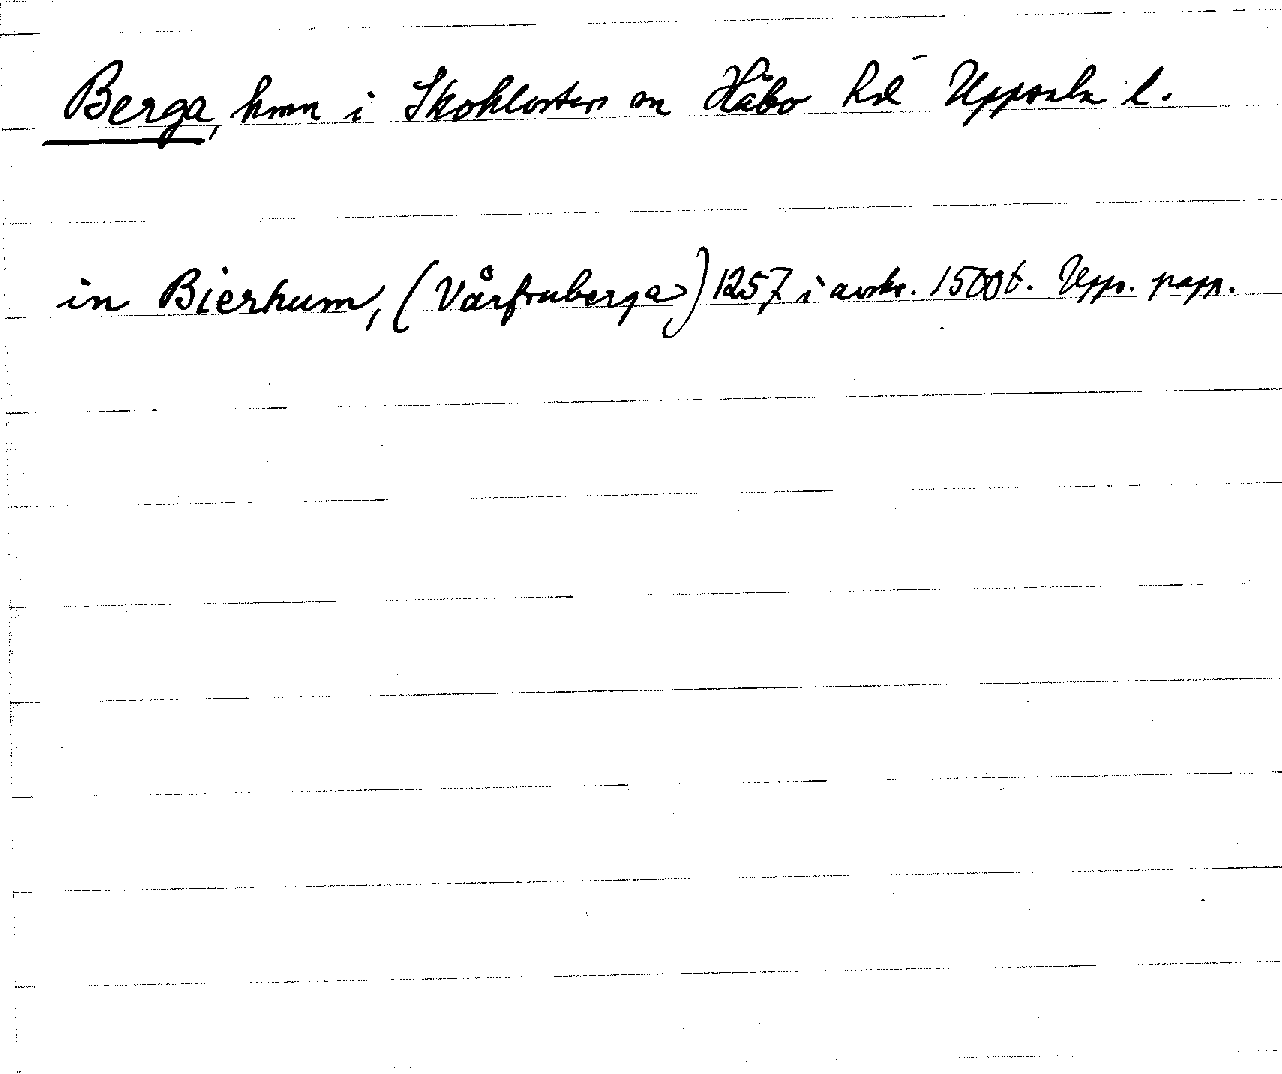 Berga, hmn i Skoklosters sn Håbo hd Uppsala l.
in Bierhum, (Vårfruberga) 1257 i avskr. 1500 t. Upps. papp.